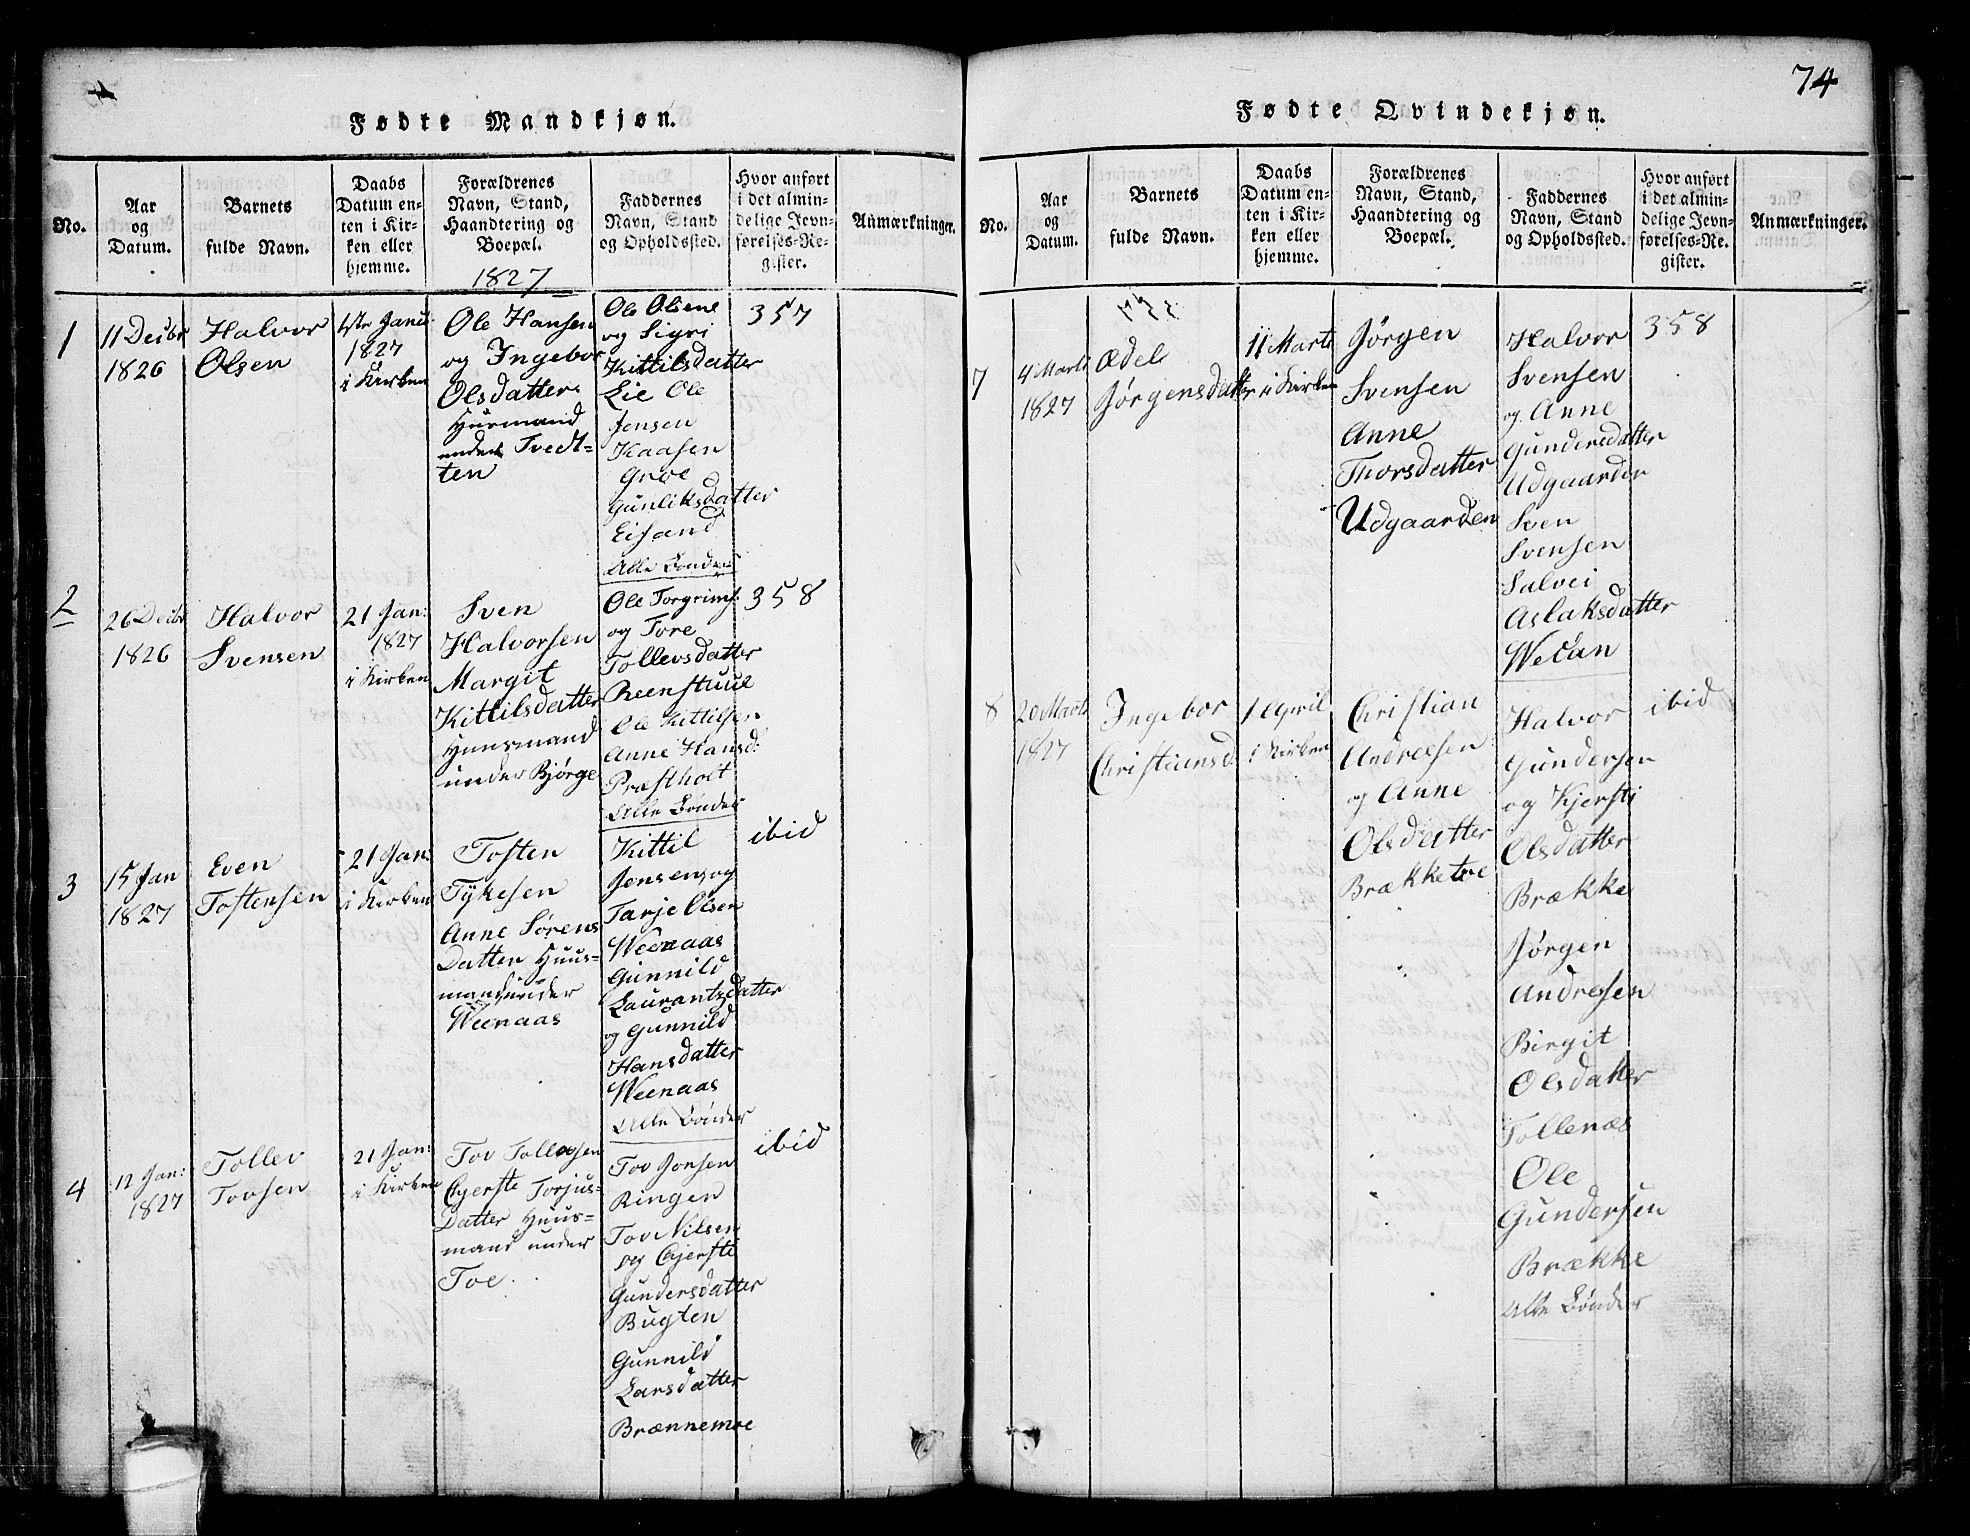 Fødte Mandkjøn.
No.
Aar
og
Datum.
Barnets
fulde Navn.
Daabs
Datum en-
ten i Kir-
ken eller
hjemme.
Forældrenes
Navn, Stand,
Haandtering og
Boepæl.
1827
Faddernes
Navn, Stand
og Opholdssted.
Hvor anført
i det almin-
delige Jevn-
førelses-Re-
gister.
Anmærkninger.
1
11 Decbr
1826
Halvor
Olsen
1ste Janu:
1827
i Kirken
Ole Hansen
og Ingebor
Olsdatter
Huusmand
under Tvedt-
ten
Ole Olsene
og Sigri
Kittilsdatter
Lie Ole
Jensen
Kaasen
Groe
Gunliksdatter
Eisand
Alle Bønder
357
2
26 Decbr
1826
Halvor
Svensen
21 Jan:
1827
i Kirken
Sven
Halvorsen
Margit
Kittilsdatter
Huusmand
under Bjørge
Ole Torgrims:
og Tore
Tollevsdatter
Reenstuul
Ole Kittilsen
Anne Hansd:
Præstholt
Alle Bønder
358
3
15 Jan
1827
Even
Tostensen
21 Jan:
i Kirken
Tosten
Tykesen
Anne Sørens
Datter Huus-
mand under
Weenaas
Kittil
Jensen og
Tarje Olsen
Weenaas
Gunnild
Laurantzdatter
og Gunnild
Hansdatter
Weenaas
Alle Bønder
ibid
4
12 Jan:
1827
Tollev
Tovsen
21 Jan:
i Kirken
Tov Tollevsen
Gjerste Torjus-
Datter Huus-
mand under
Toe
Tov Jonsen
Ringen
Tov Nilsen
og Gjersti
Gundersdatter
Bugten
Gunnild
Larsdatter
Brænnemoe
ibid
74
Fødte Qvindekjøn.
No.
Aar
og
Datum.
Barnets
fulde Navn.
Daabs
Datum en-
ten i Kir-
ken eller
hjemme.
Forældrenes
Navn, Stand,
Haandtering og
Boepæl.
Faddernes
Navn, Stand
og Opholdssted.
Hvor anført
i det almin-
delige Jevn-
førelses-Re-
gister.
Anmærkninger.
7
4 Marti
1827
Ædel
Jørgensdatter
11 Marti
i Kirken
Jørgen
Svensen
Anne
Thorsdatter
Udgaarden
Halvor
Svensen
og Anne
Gundersdatter
Udgaarden
Sven
Svensen
Salvei
Aslaksdatter
Wean
358
8
20 Marti
1827
Ingebor
Christiansd
1 April
i Kirken
Christian
Andresen
og Anne
Olsdatter
Brækketoe
Halvor
Gundersen
og Kjersti
Olsdatter
Brække
Jørgen
Andresen
Birgit
Olsdatter
Tollenæs
Ole
Gundersen
Brække
Alle Bønder
ibid